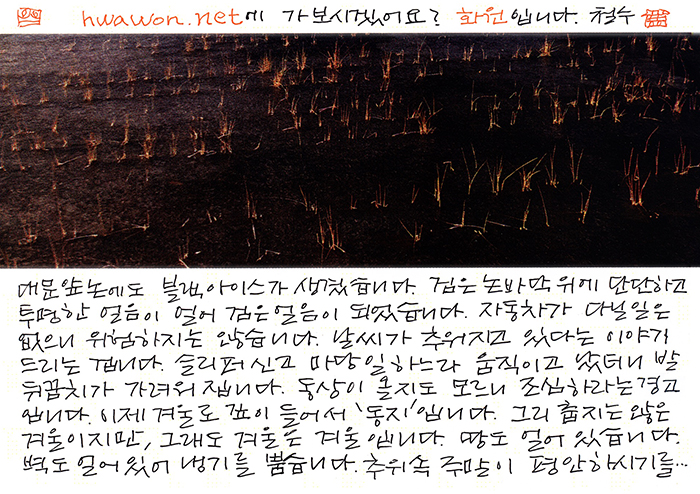 hwawon.net에 가보시겠어요? 화원입니다. 철수
대문앞논에도 블랙아이스가 생겼습니다. 검은 논바닥 위에 단단하고
투명한 얼음이 얼어 검은얼음이 되었습니다. 자동차가 다닐일은
없으니 위험하지는 않습니다. 날씨가 추워지고 있다는 이야기
드리는 겁니다. 슬리퍼신고 마당일하느라 움직이고 났더니 발
뒤꿈치가 가려워집니다. 동상이 올지도 모르니 조심하라는경고
입니다. 이제 겨울로 깊이 들어서 '동지'입니다. 그리 춥지는 않은
겨울이지만, 그래도 겨울은 겨울입니다. 땅도 얼어 있습니다.
벽도 얼어있어 냉기를 뿜습니다. 추위속 주말이 평안하시기를…